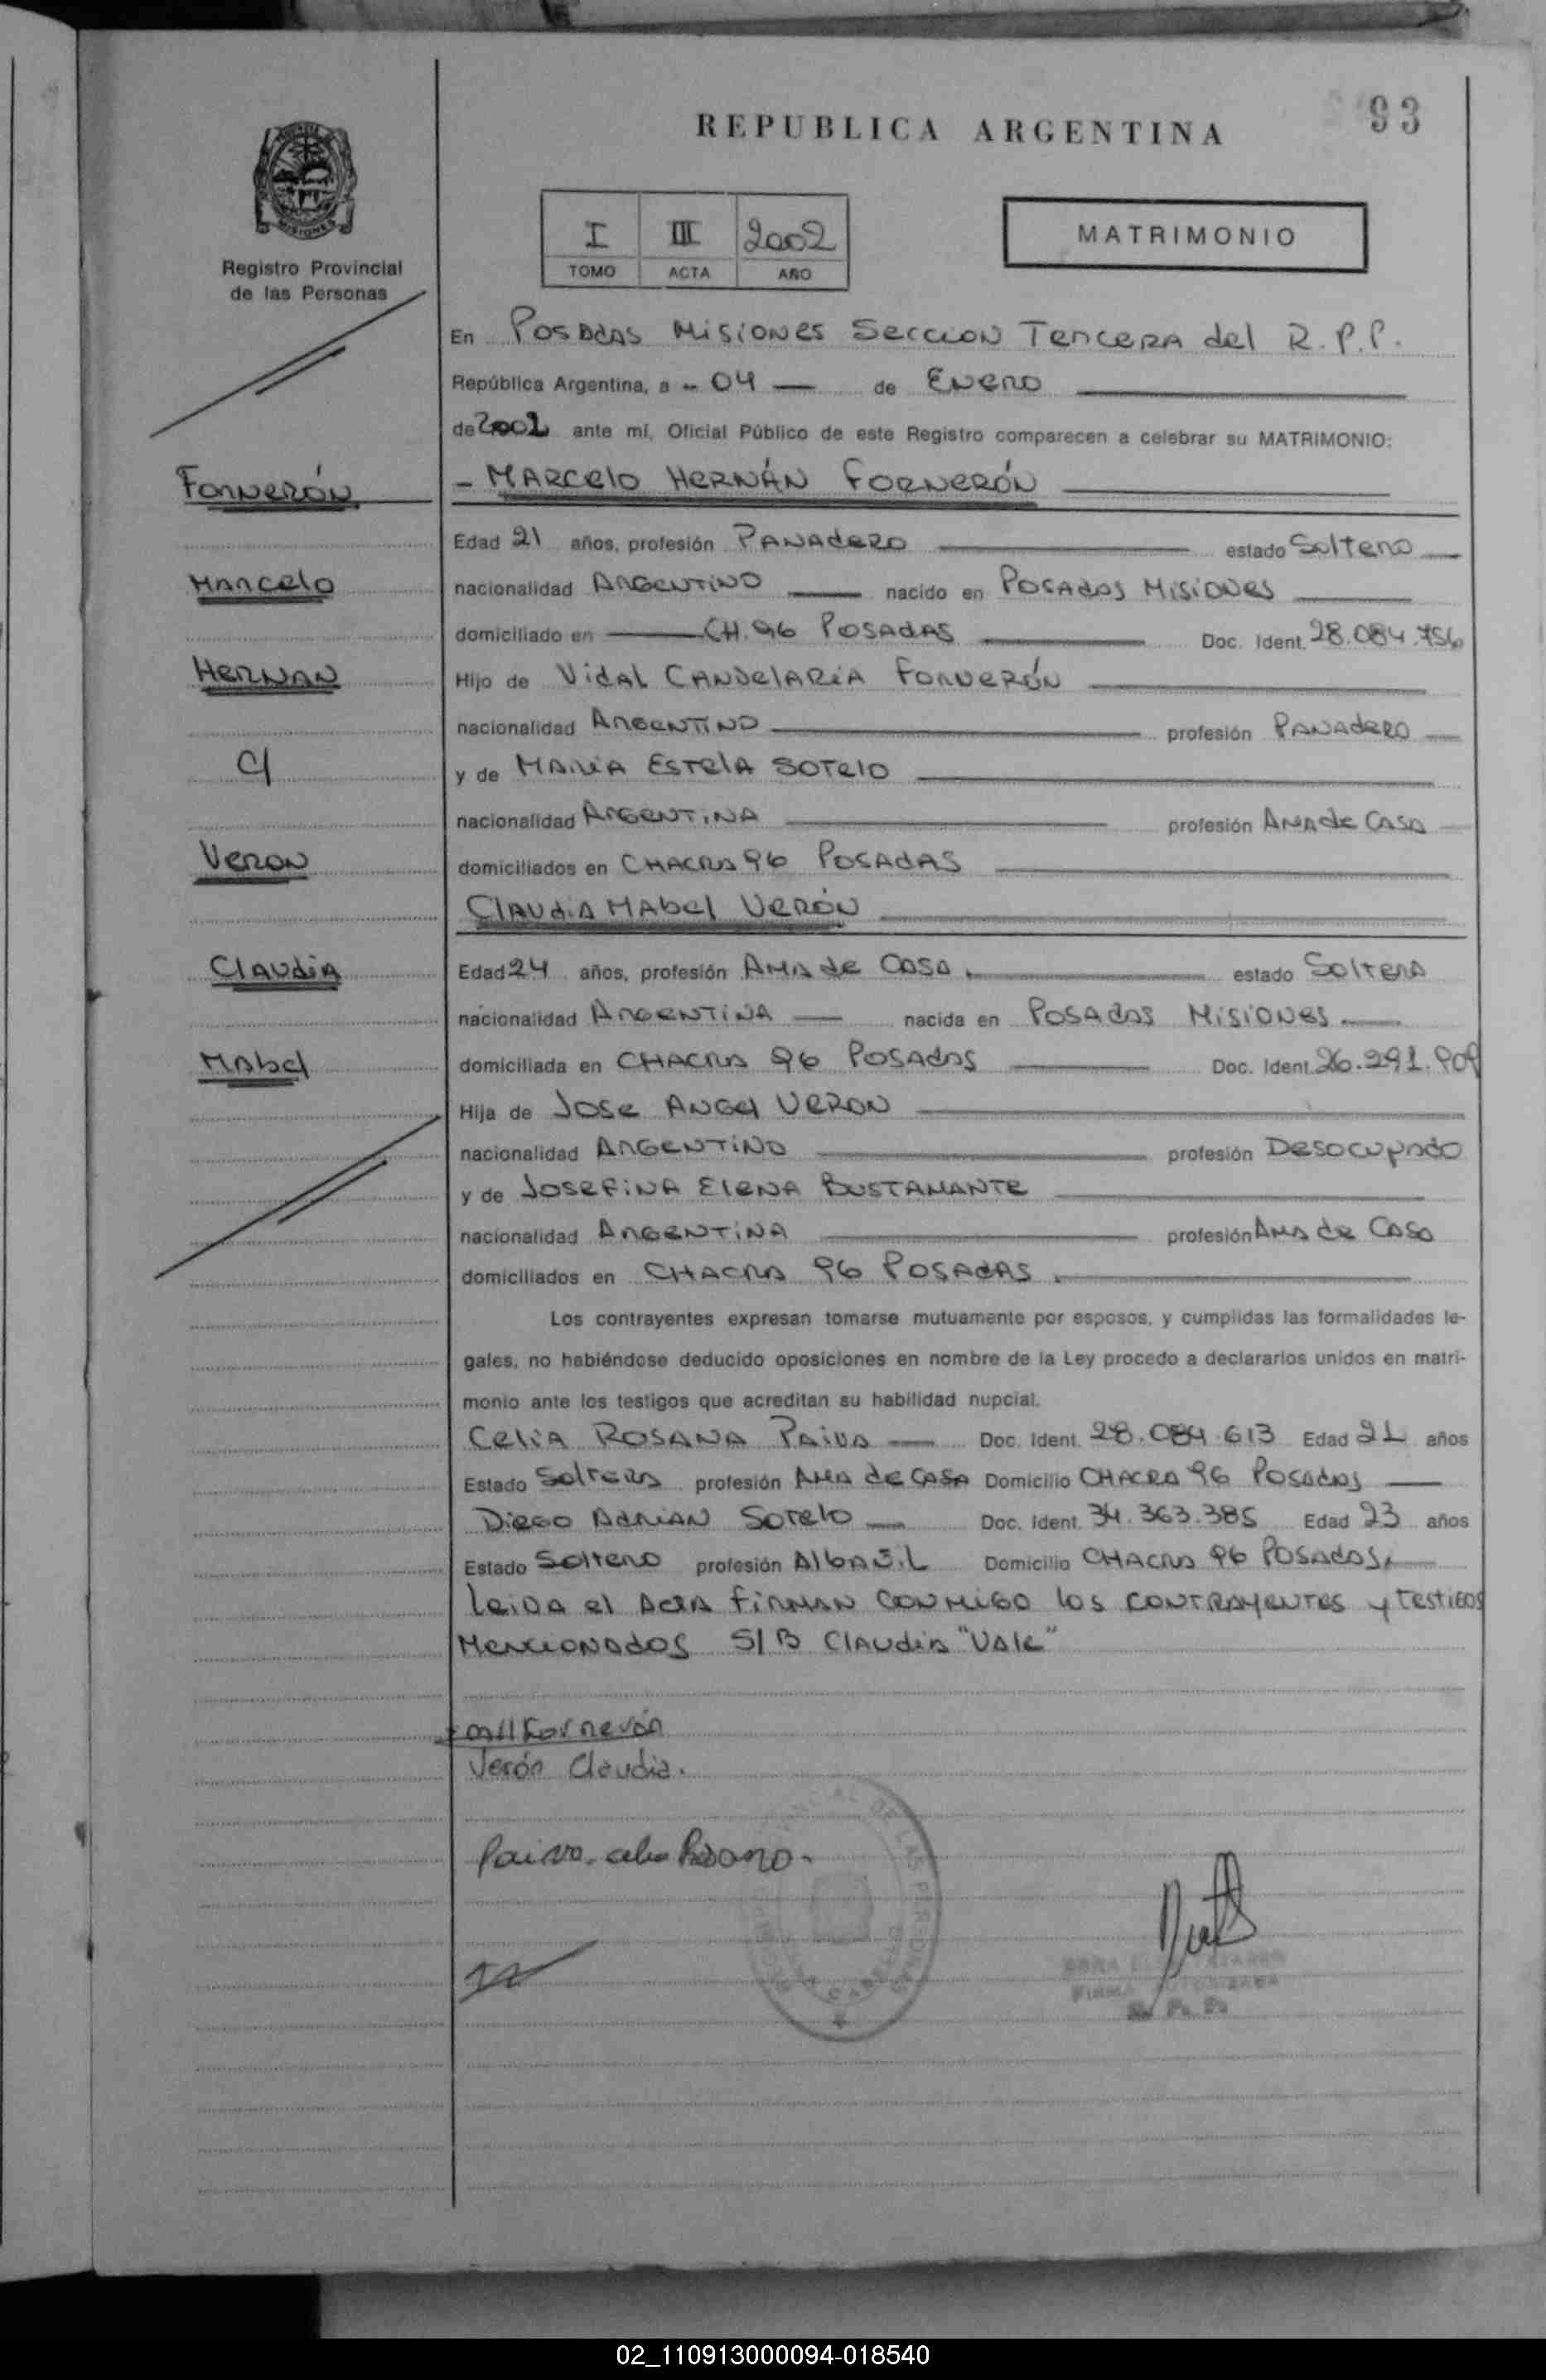 93
REPUBLICA ARGENTINA
MISIONES
Registro Provincial
de las Personas
I III 2002
TOMO ACTA AÑO
MATRIMONIO
En Posadas Misiones Seccion Tercera del R.P.P.
República Argentina, a 04 de Enero
de 2002 ante mí, Oficial Público de este Registro comparecen a celebrar su MATRIMONIO:
Fornerón
- Marcelo Hernán Fornerón
Edad 21 años, profesión Panadero estado Soltero
Marcelo
nacionalidad Argentino nacido en Posadas Misiones
domiciliado en CH. 96 Posadas Doc. Ident. 28.084.756
Hernan
Hijo de Vidal Candelaria Fornerón
nacionalidad Argentino profesión Panadero
C/
y de Maria Estela Sotelo
nacionalidad Argentina profesión Ama de Casa
Veron
domiciliados en Chacra 96 Posadas
Claudia Mabel Verón
Claudia
Edad 24 años, profesión Ama de Casa. estado Soltera
nacionalidad Argentina nacida en Posadas Misiones.
Mabel
domiciliada en Chacra 96 Posadas Doc. Ident. 26.291.909
Hija de Jose Angel Veron
nacionalidad Argentino profesión Desocupado
y de Josefina Elena Bustamante
nacionalidad Argentina profesión Ama de Casa
domiciliados en Chacra 96 Posadas.
Los contrayentes expresan tomarse mutuamente por esposos, y cumplidas las formalidades le-
gales, no habiéndose deducido oposiciones en nombre de la Ley procedo a declararlos unidos en matri-
monio ante los testigos que acreditan su habilidad nupcial.
Celia Rosana Paiva Doc. Ident. 28.084.613 Edad 21 años
Estado Soltera profesión Ama de Casa Domicilio Chacra 96 Posadas
Diego Adrian Sotelo Doc. Ident. 34.363.385 Edad 23 años
Estado Soltero profesión Albañil Domicilio Chacra 96 Posadas.
Leida el Acta firman conmigo los contrayentes y testigos
Mencionados S/B Claudia "Vale"
Fornerón
Verón Claudia.
Paiva
FIRMA
R. P. P.
02_110913000094-018540